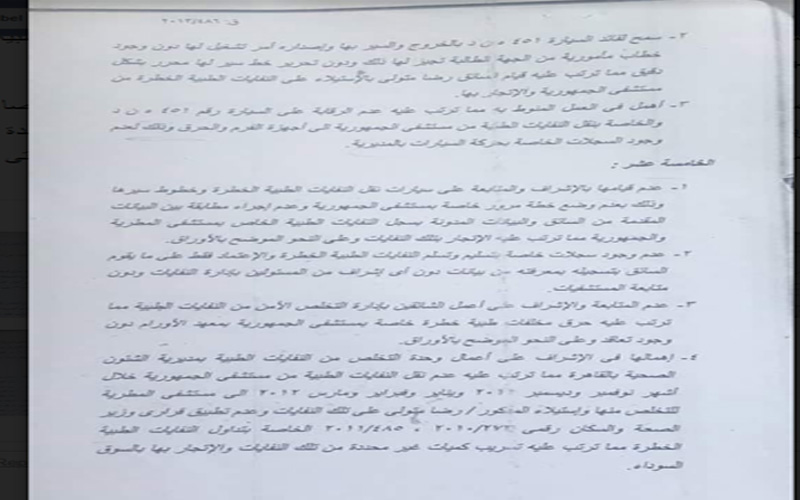 ق: ٢٠١٣/٤٨٦
٢- سمح لقائد السيارة ٤٥١ ه ن د بالخروج والسير بها وإصداره أمر تشغيل لها دون وجود
خطاب مأمورية من الجهة الطالبة تجيز لها ذلك ودون تحرير خط سير لها محرر بشكل
دقيق مما ترتب عليه قيام السائق رضا متولى بالإستيلاء على النفايات الطبية الخطرة من
مستشفى الجمهورية والإتجار بها.
٣- أهمل فى العمل المنوط به مما ترتب عليه عدم الرقابة على السيارة رقم ٤٥١ ه ن د
والخاصة بنقل النفايات الطبية من مستشفى الجمهورية الى أجهزة الفرم والحرق وذلك لعدم
وجود السجلات الخاصة بحركة السيارات بالمديرية.
الخامسة عشر :
١- عدم قيامها بالإشراف والمتابعة على سيارات نقل النفايات الطبية الخطرة وخطوط سيرها
وذلك بعدم وضع خطة مرور خاصة بمستشفى الجمهورية وعدم إجراء مطابقة بين البيانات
المقدمة من السائق والبيانات المدونة بسجل النفايات الطبية الخاص بمستشفى المطرية
والجمهورية مما ترتب عليه الإتجار بتلك النفايات وعلى النحو الموضح بالأوراق.
٢- عدم وجود سجلات خاصة بتسليم وتسلم النفايات الطبية الخطرة والإعتماد فقط على ما يقوم
السائق بتسجيله بمعرفته من بيانات دون أى إشراف من المسئولين بإدارة النفايات ودون
متابعة المستشفيات.
٣- عدم المتابعة والإشراف على أعمل الشائقين بإدارة التخلص الأمن من النفايات الطبية مما
ترتب عليه حرق مخلفات طبية خطرة خاصة بمستشفى الجمهورية بمعهد الأورام دون
وجود تعاقد وعلى النحو الموضح بالأوراق.
٤- إهمالها فى الإشراف على أعمال وحدة التخلص من النفايات الطبية بمديرية الشئون
الصحية بالقاهرة مما ترتب عليه عدم نقل النفايات الطبية من مستشفى الجمهورية خلال
أشهر نوفمبر وديسمبر ويناير وفبراير ومارس ٢٠١٢ الى مستشفى المطرية
للتخلص منها وإستيلاء المذكور / رضا متولى على تلك النفايات وعدم تطبيق قرارى وزير
الصحة والسكان رقمى ٢٠١١/٤٨٥ الخاصة بتداول النفايات الطبية
الخطرة مما ترتب عليه تسريب كميات غير محددة من تلك النفايات والإتجار بها بالسوق
السوداء.